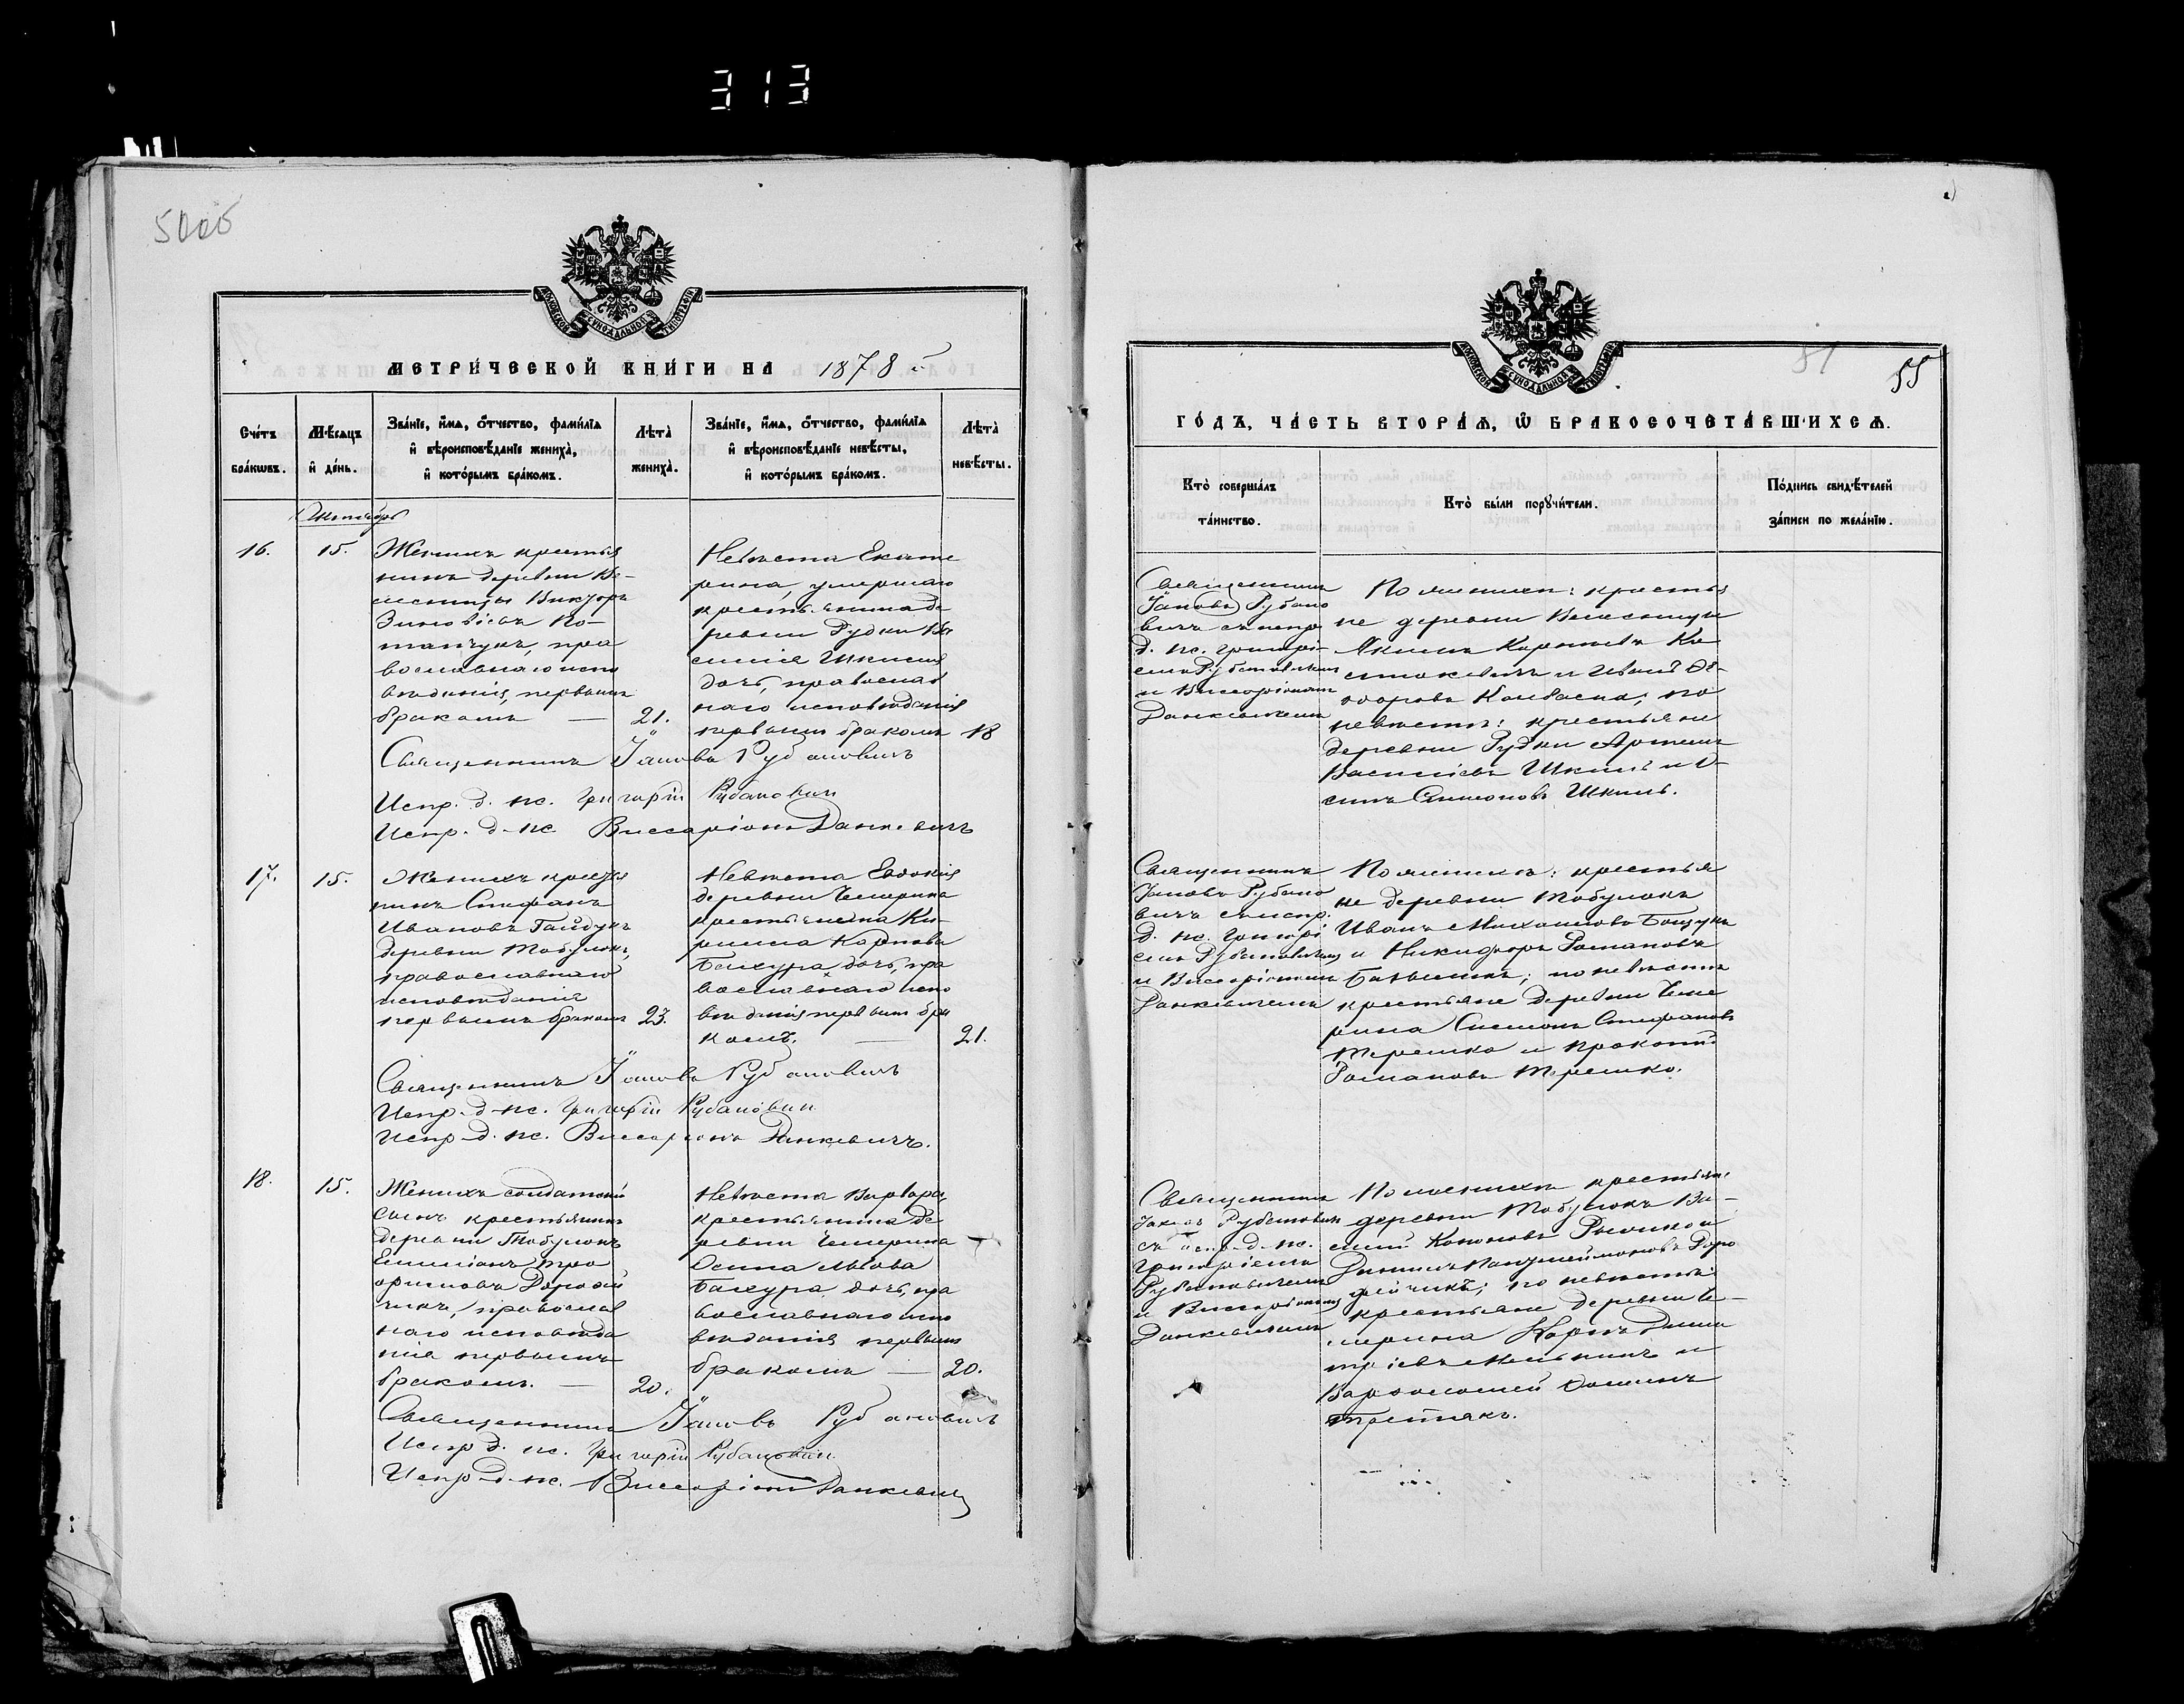 313
МОСКОВСКОЙ СѴНОДАЛЬНОЙ ТИПОГРАФІИ
МЕТРИ́ЧЕСКОЙ КНИ́ГИ НА 1878 й
Сче́тъ бра́кѡвъ.
Мѣ́сяцъ и҆ де́нь.
Зва́нїе, и҆́мѧ, ѻ҆́тчество, фами́лїѧ
и҆ вѣроисповѣ́данїе жениха̀,
и҆ кото́рымъ бра́комъ.
Лѣта̀
жениха̀.
Зва́нїе, и҆́мѧ, ѻ҆́тчество, фами́лїѧ
и҆ вѣроисповѣ́данїе невѣ́сты,
и҆ кото́рымъ бра́комъ.
Лѣта̀
невѣ́сты.
Октябрь
16.
15.
Женихъ крестья
нинъ деревни
Викторъ
Зиновіевъ По-
тапчукъ, пра
вославнаго испо
вѣданія, первымъ
бракомъ —
21.
Невѣста Екате
рина, умершаго
крестьянина де
ревни Рудки Ва
силія
дочь, православ
наго исповѣданія
первымъ бракомъ
18
Священникъ Іаковъ Рубановичъ
Испр. д. пс. Григорій Рубанович
Испр. д. пс. Виссаріонъ Данкевичъ
17.
15.
Женихъ крестья
нинъ Стефанъ
Ивановъ Гайдукъ
деревни Тобулокъ,
православнаго
исповѣданія
первымъ бракомъ
23.
Невѣста Евдокія
деревни Чемерина
крестьянина Ки-
рилла Карпова
Бахура дочь, пра
вославнаго испо
вѣданія первымъ бра
комъ. —
21.
Священникъ Іаковъ Рубановичъ
Испр. д. пс. Григорій Рубанович
Испр. д. пс. Виссаріонъ Данкевичъ.
18.
15.
Женихъ солдатскій
сынъ крестьянинъ
деревни Тобулокъ
Емиліанъ Тро
фимовъ Дорофей
чикъ, православ
наго исповѣда
нія первымъ
бракомъ. —
20.
Невѣста Варвара,
крестьянина де
ревни Чемерина
Осипа Львова
Бахура дочь, пра
вославнаго испо
вѣданія первымъ
бракомъ —
20.
Священникъ Іаковъ Рубановичъ
Испр д. пс. Григорій Рубанович
Испр. д. пс. Виссаріонъ Данкевич
МОСКОВСКОЙ СѴНОДАЛЬНОЙ ТИПОГРАФІИ
51
55
ГО́ДЪ, ЧА́СТЬ ВТОРА́Ѧ, Ѡ҆ БРАКОСОЧЕТА́ВШИХСѦ.
Кто̀ соверша́лъ
та́инство.
Кто̀ бы́ли порꙋчи́тели.
По́дпись свидѣ́телей
за́писи по жела́нїю.
Священникъ
Іаковъ Рубано
вичъ съ испр.
д. пс. Григорі-
емъ Рубановичемъ
и Виссаріономъ
Данкевичемъ
По женихѣ: крестья
не деревни
Якимъ Карповъ Ка
и Иванъ Ѳе-
доровъ Колбаска; по
невѣстѣ: крестьяне
деревни Рудки Артемъ
Васильевъ и О-
сипъ Симоновъ
Священникъ
Іаковъ Рубано
вичъ съ испр.
д. пс. Григорі
емъ Рубановичемъ
и Виссаріономъ
Данкевичемъ
По женихѣ: крестья
не деревни Тобулокъ
Иванъ Михаиловъ
и Никифоръ Романовъ
по невѣстѣ
крестьяне деревни Чеме
рина Симонъ Стефановъ
Терешко и Прокопій
Романовъ Терешко.
Священникъ
Іаковъ Рубановичъ
съ испр. д. пс.
Григоріемъ
Рубановичемъ
и Виссаріономъ
Данкевичемъ
По женихѣ крестьяне
деревни Тобулокъ Ва-
силій Кононовъ
Пантелеймоновъ Доро
фейчикъ; по невѣстѣ:
крестьяне деревни Че-
мерина Карпъ Дими
тріевъ и
Варѳоломей Фоминъ
Третякъ.